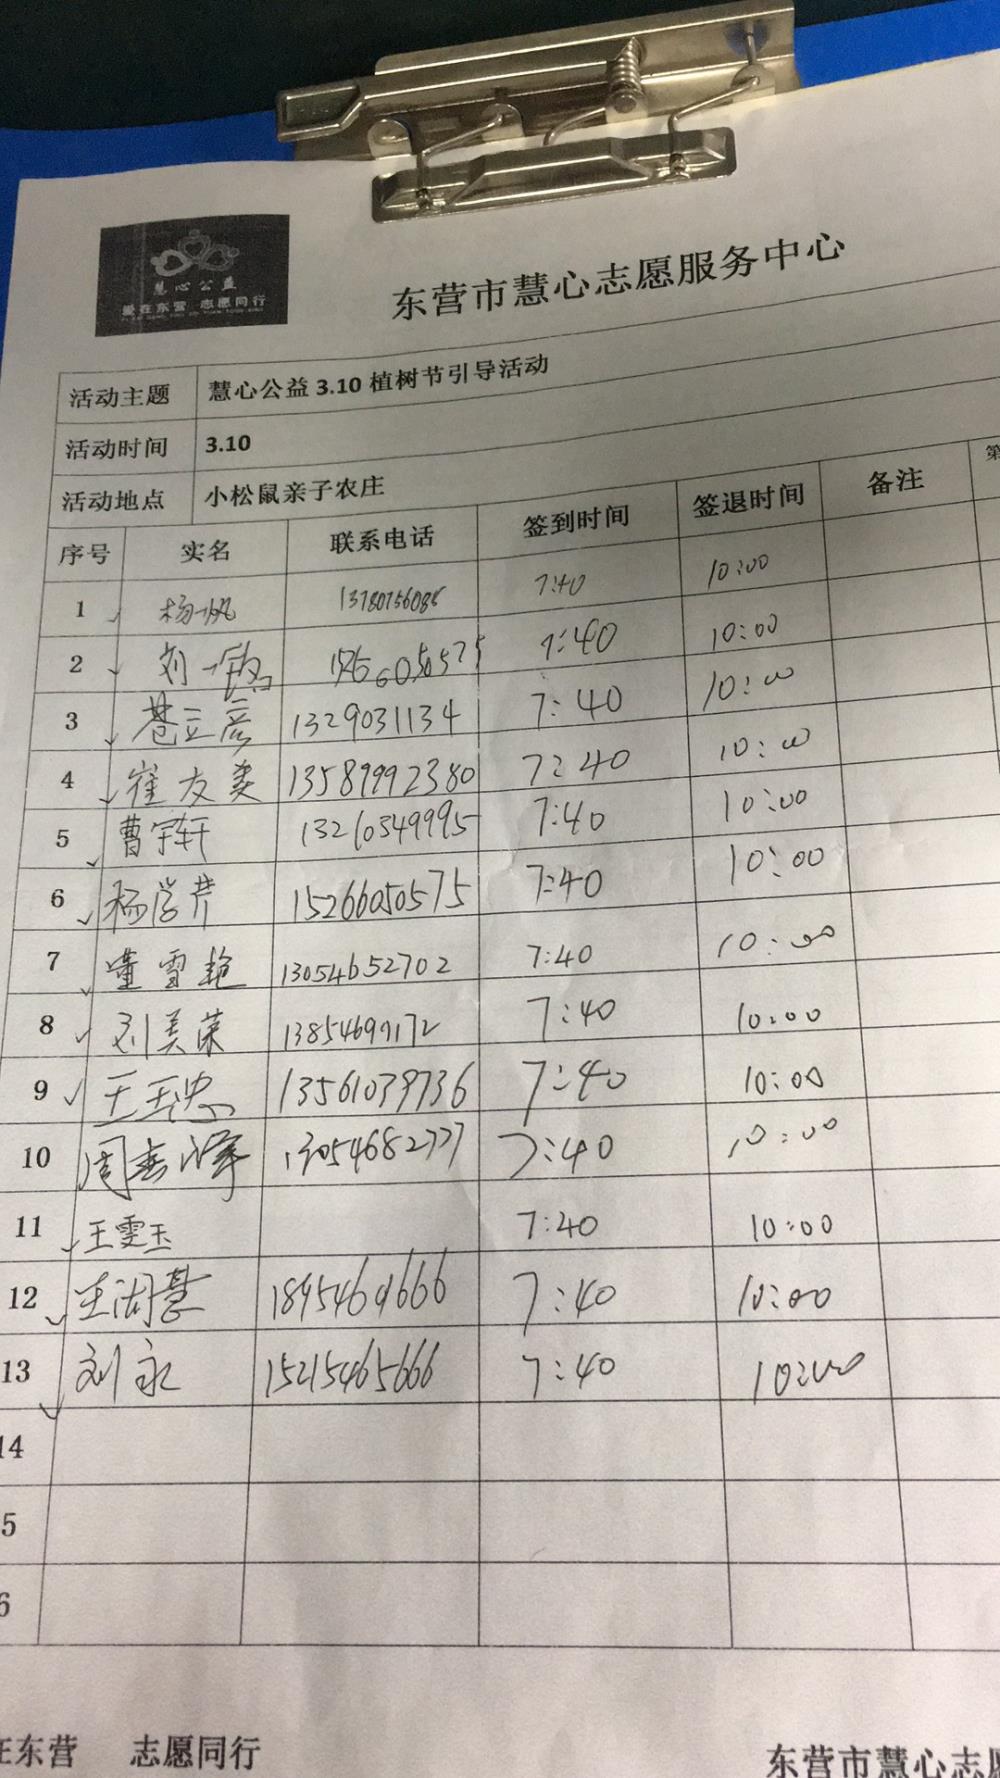 慧心公益
爱在东营 志愿同行
东营市慧心志愿服务中心
活动主题 慧心公益 3.10 植树节引导活动
活动时间 3.10
活动地点 小松鼠亲子农庄
序号 实名 联系电话 签到时间 签退时间 备注 第
1 杨帆 13780756088 7:40 10:00
2 刘一铭 7:40 10:00
3 苍立彦 1329031134 7:40 10:00
4 崔友美 13589992380 7:40 10:00
5 曹宇轩 13210349995 7:40 10:00
6 杨学芹 15266050575 7:40 10:00
7 董雪艳 13054652702 7:40 10:00
8 刘美荣 13854699172 7:40 10:00
9 王玉忠 13561039736 7:40 10:00
10 周春峰 13054682777 7:40 10:00
11 王雯玉 7:40 10:00
12 慧 7:40 10:00
13 刘永 15215465666 7:40 10:00
14
5
6
在东营 志愿同行
东营市慧心志愿